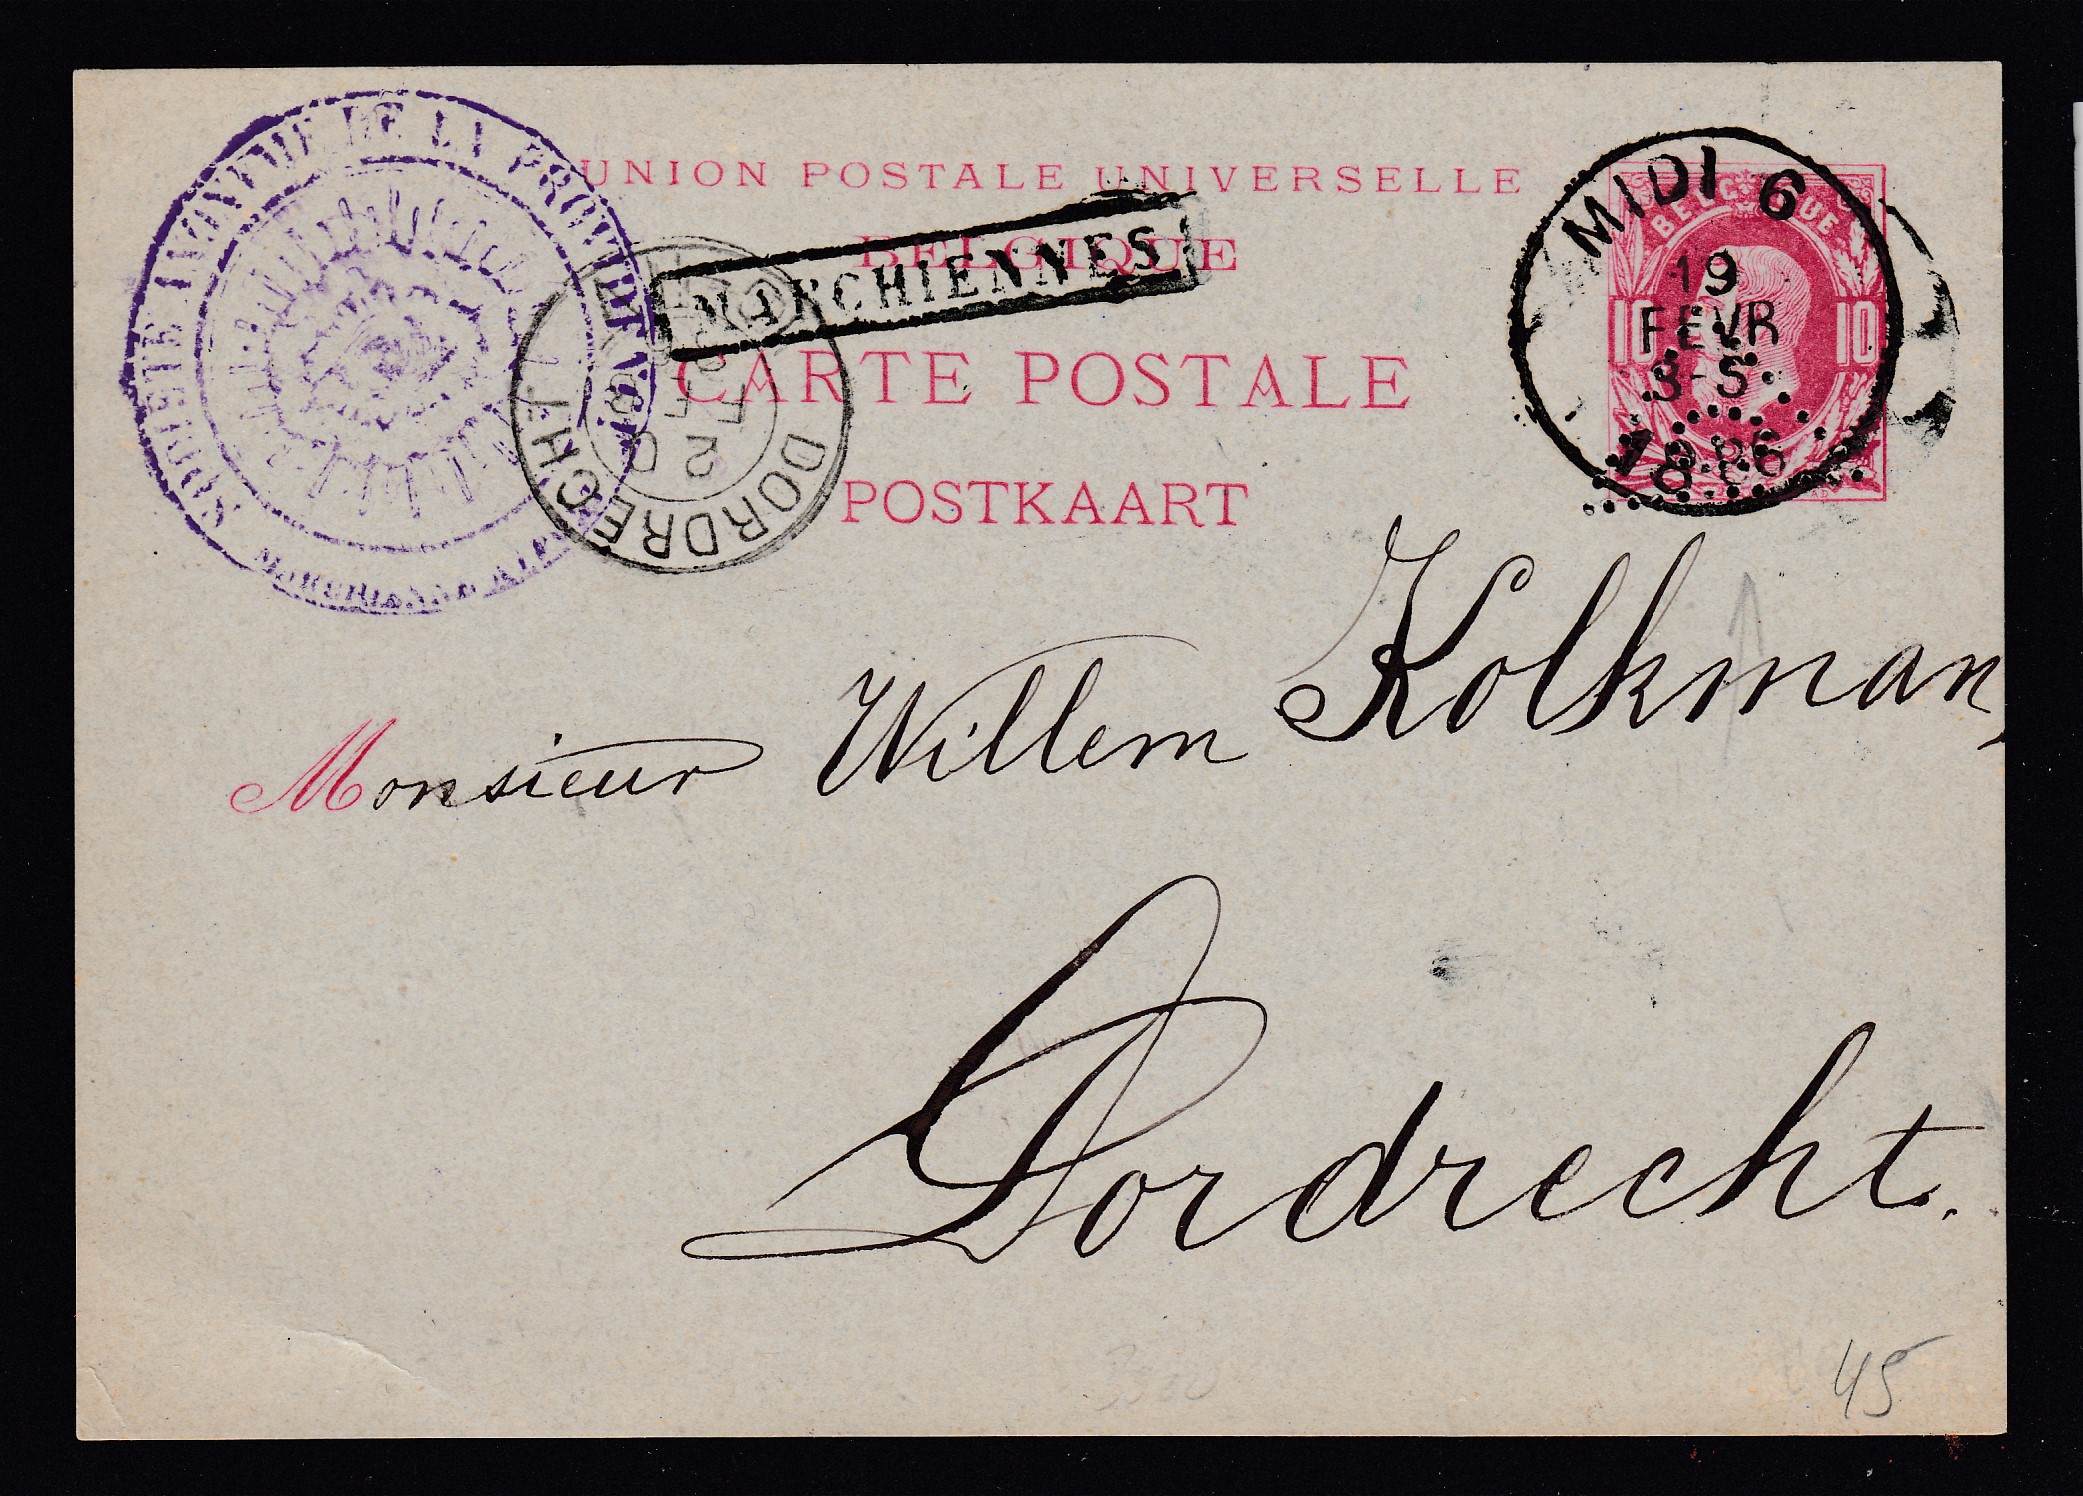 UNION POSTALE UNIVERSELLE
BELGIQUE
CARTE POSTALE
POSTKAART
SOCIETE ANONYME DE LA PROVIDENCE
MARCHIENNE
MARCHIENNES
DORDRECHT
20
MIDI 6
19
FEVR
3-5
1886
BELGIQUE
10 10
Monsieur Willem Kolkman,
Dordrecht.
45